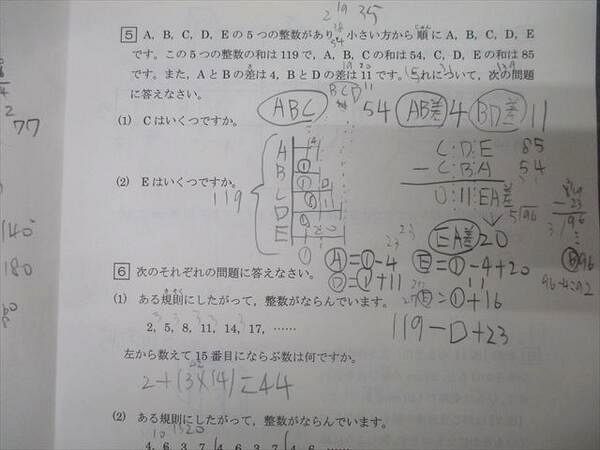 2 19 35
5 A, B, C, D, Eの5つの整数があり、小さい方から順にA, B, C, D, E
です。この5つの整数の和は119で、A, B, Cの和は54, C, D, Eの和は85
です。また、AとBの差は4, BとDの差は11です。これについて、次の問題
に答えなさい。
ABC 54 AB差 4 BD差 11
(1) Cはいくつですか。
77
A
B
C
D
E
119
C:D:E 85
- C:B:A 54
0:11:EA差
(2) Eはいくつですか。
EA差 20
A=①-4 E=①-4+20
D=①+11 E=①+16
B 96
96-4=92
119-D+23
140
180
6 次のそれぞれの問題に答えなさい。
(1) ある規則にしたがって、整数がならんでいます。
2, 5, 8, 11, 14, 17, ……
左から数えて15番目にならぶ数は何ですか。
2+(3×14)=44
(2) ある規則にしたがって、整数がならんでいます。
4, 6, 3, 7, 4, 6, 3, 7, 4, 6, ……